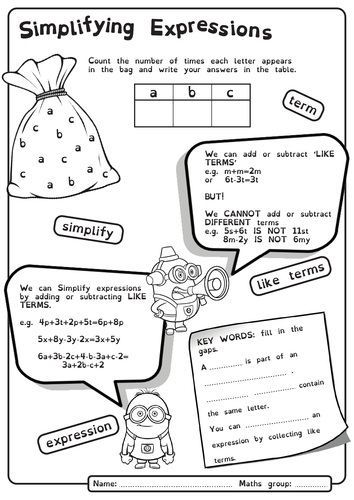 Simplifying Expressions
Count the number of times each letter appears
in the bag and write your answers in the table.
a b c
term
a
c c
b c
b a
a c
c a
a b
We can add or subtract 'LIKE
TERMS'
e.g. m+m=2m
or 6t-3t=3t
BUT!
We CANNOT add or subtract
DIFFERENT terms
e.g. 5s+6t IS NOT 11st
8m-2y IS NOT 6my
simplify
like terms
We can Simplify expressions
by adding or subtracting LIKE
TERMS.
e.g. 4p+3t+2p+5t=6p+8p
5x+8y-3y-2x=3x+5y
6a+3b-2c+4-b-3a+c-2=
3a+2b-c+2
KEY WORDS: fill in the
gaps.
A ............ is part of an
........................... .
............ ............ contain
the same letter.
You can ............... an
expression by collecting like
terms.
expression
Name: ........................................ Maths group: ............